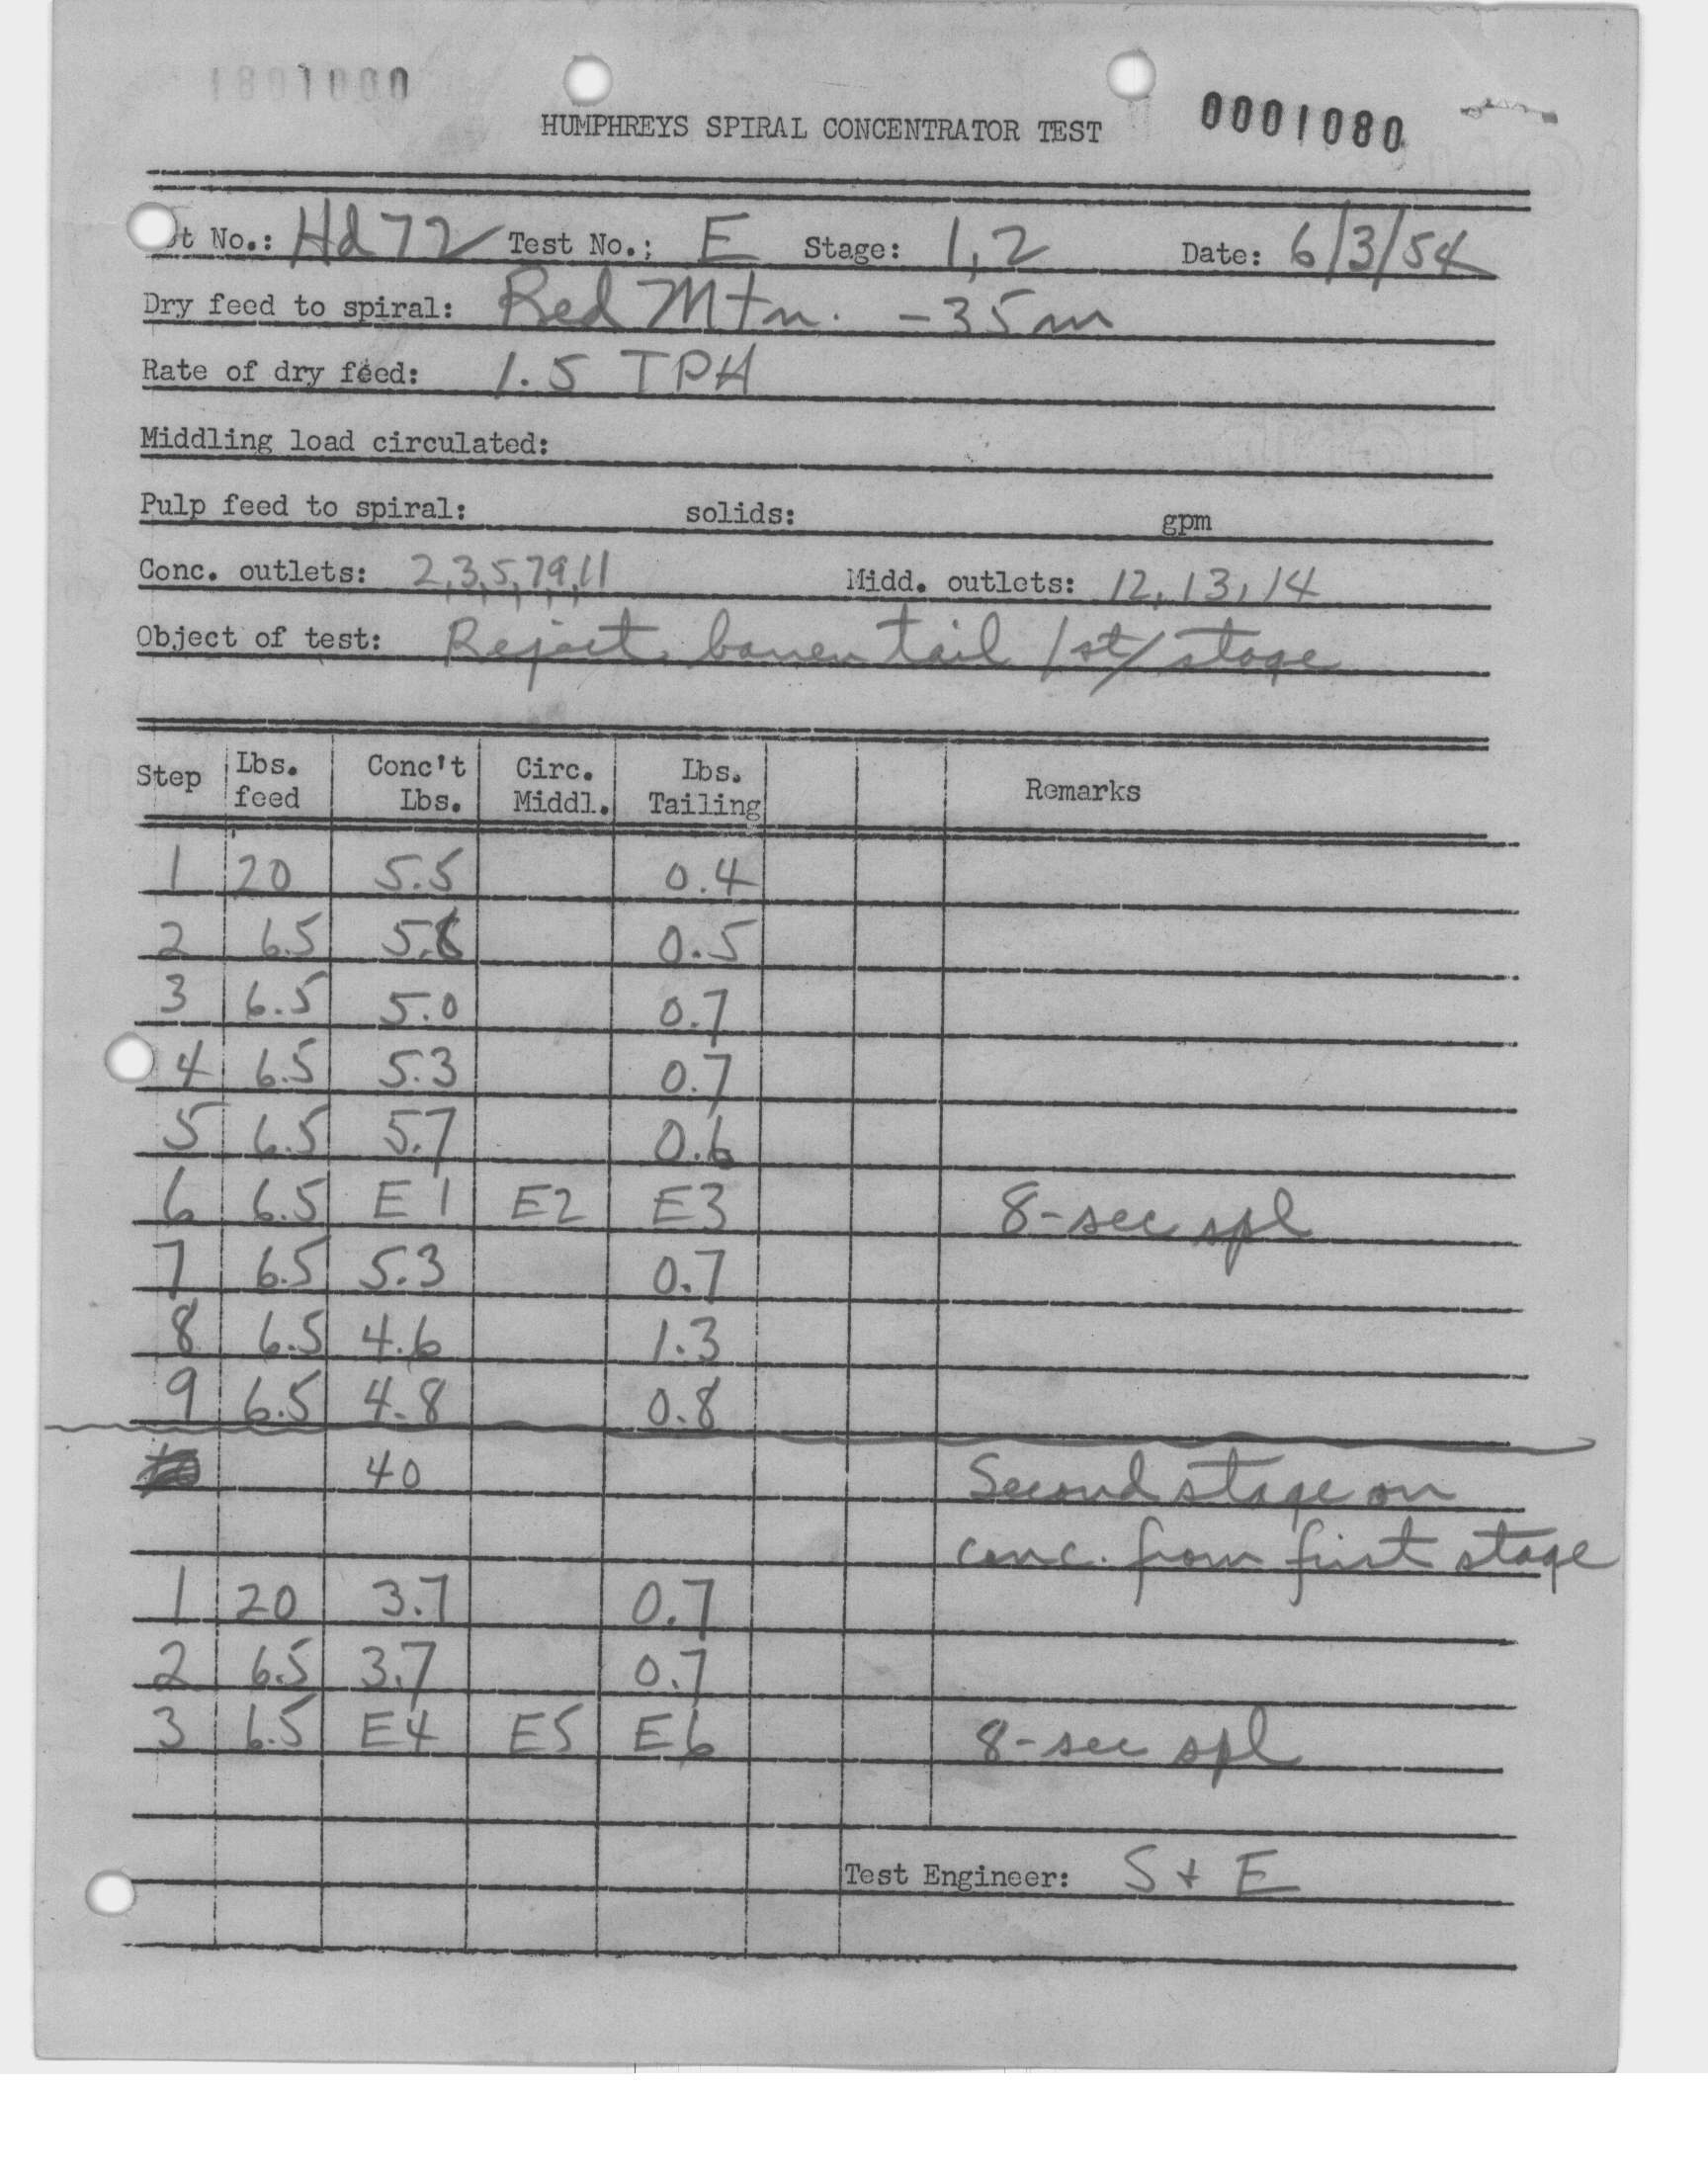 0001081
HUMPHREYS SPIRAL CONCENTRATOR TEST 0001080
t No.: Hd 72 Test No.: E Stage: 1,2 Date: 6/3/54
Dry feed to spiral: Red Mtn. -35m
Rate of dry feed: 1.5 TPH
Middling load circulated:
Pulp feed to spiral: solids: gpm
Conc. outlets: 2,3,5,7,9,11 Midd. outlets: 12,13,14
Object of test: Reject barren tail 1st/stage
Step Lbs. feed Conc't Lbs. Circ. Middl. Lbs. Tailing Remarks
1 20 5.5 0.4
2 6.5 0.5
3 6.5 5.0 0.7
4 6.5 5.3 0.7
5 6.5 5.7 0.6
6 6.5 E1 E2 E3 8-sec spl
7 6.5 5.3 0.7
8 6.5 4.6 1.3
9 6.5 4.8 0.8
40 Second stage on
conc. from first stage
1 20 3.7 0.7
2 6.5 3.7 0.7
3 6.5 E4 E5 E6 8-sec spl
Test Engineer: S + E